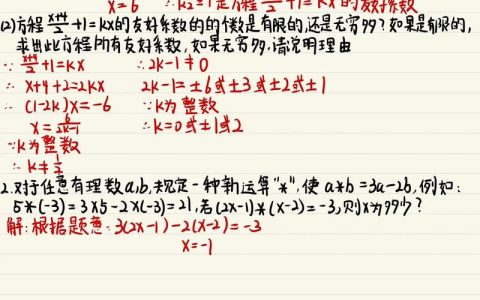 x=6 ∴k₂=1是方程 +1=kx的友好系数
(2)方程 (x+4)/2 +1=kx的友好系数的的个数是有限的,还是无穷多?如果是有限的,
求出此方程所有友好系数,如果无穷多,请说明理由
∵ (x+4)/2 +1=kx ∴2k-1≠0
∴ x+4+2=2kx 2k-1=±6或±3或±2或±1
∴ (1-2k)x=-6 ∵k为整数
x=6/(2k-1) ∴k=0或±1或2
∵k为整数
∴k≠1/2
2.对于任意有理数a,b,规定一种新运算"*",使 a*b=3a-2b,例如:
5*(-3)=3×5-2×(-3)=21,若(2x-1)*(x-2)=-3,则x为多少?
解:根据题意:3(2x-1)-2(x-2)=-3
x=-1